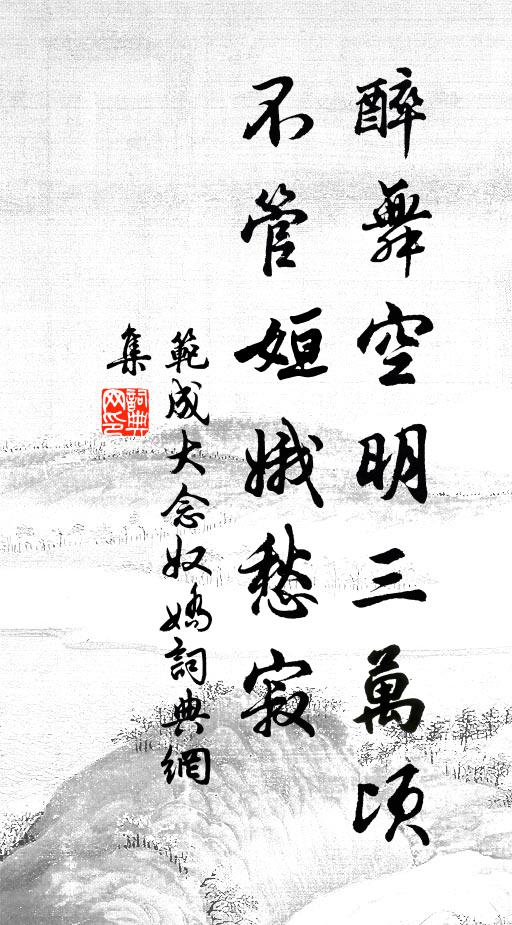 醉舞空明三萬頃
不管姮娥愁寂
範成大念奴嬌詞典網
集
詞典
网印